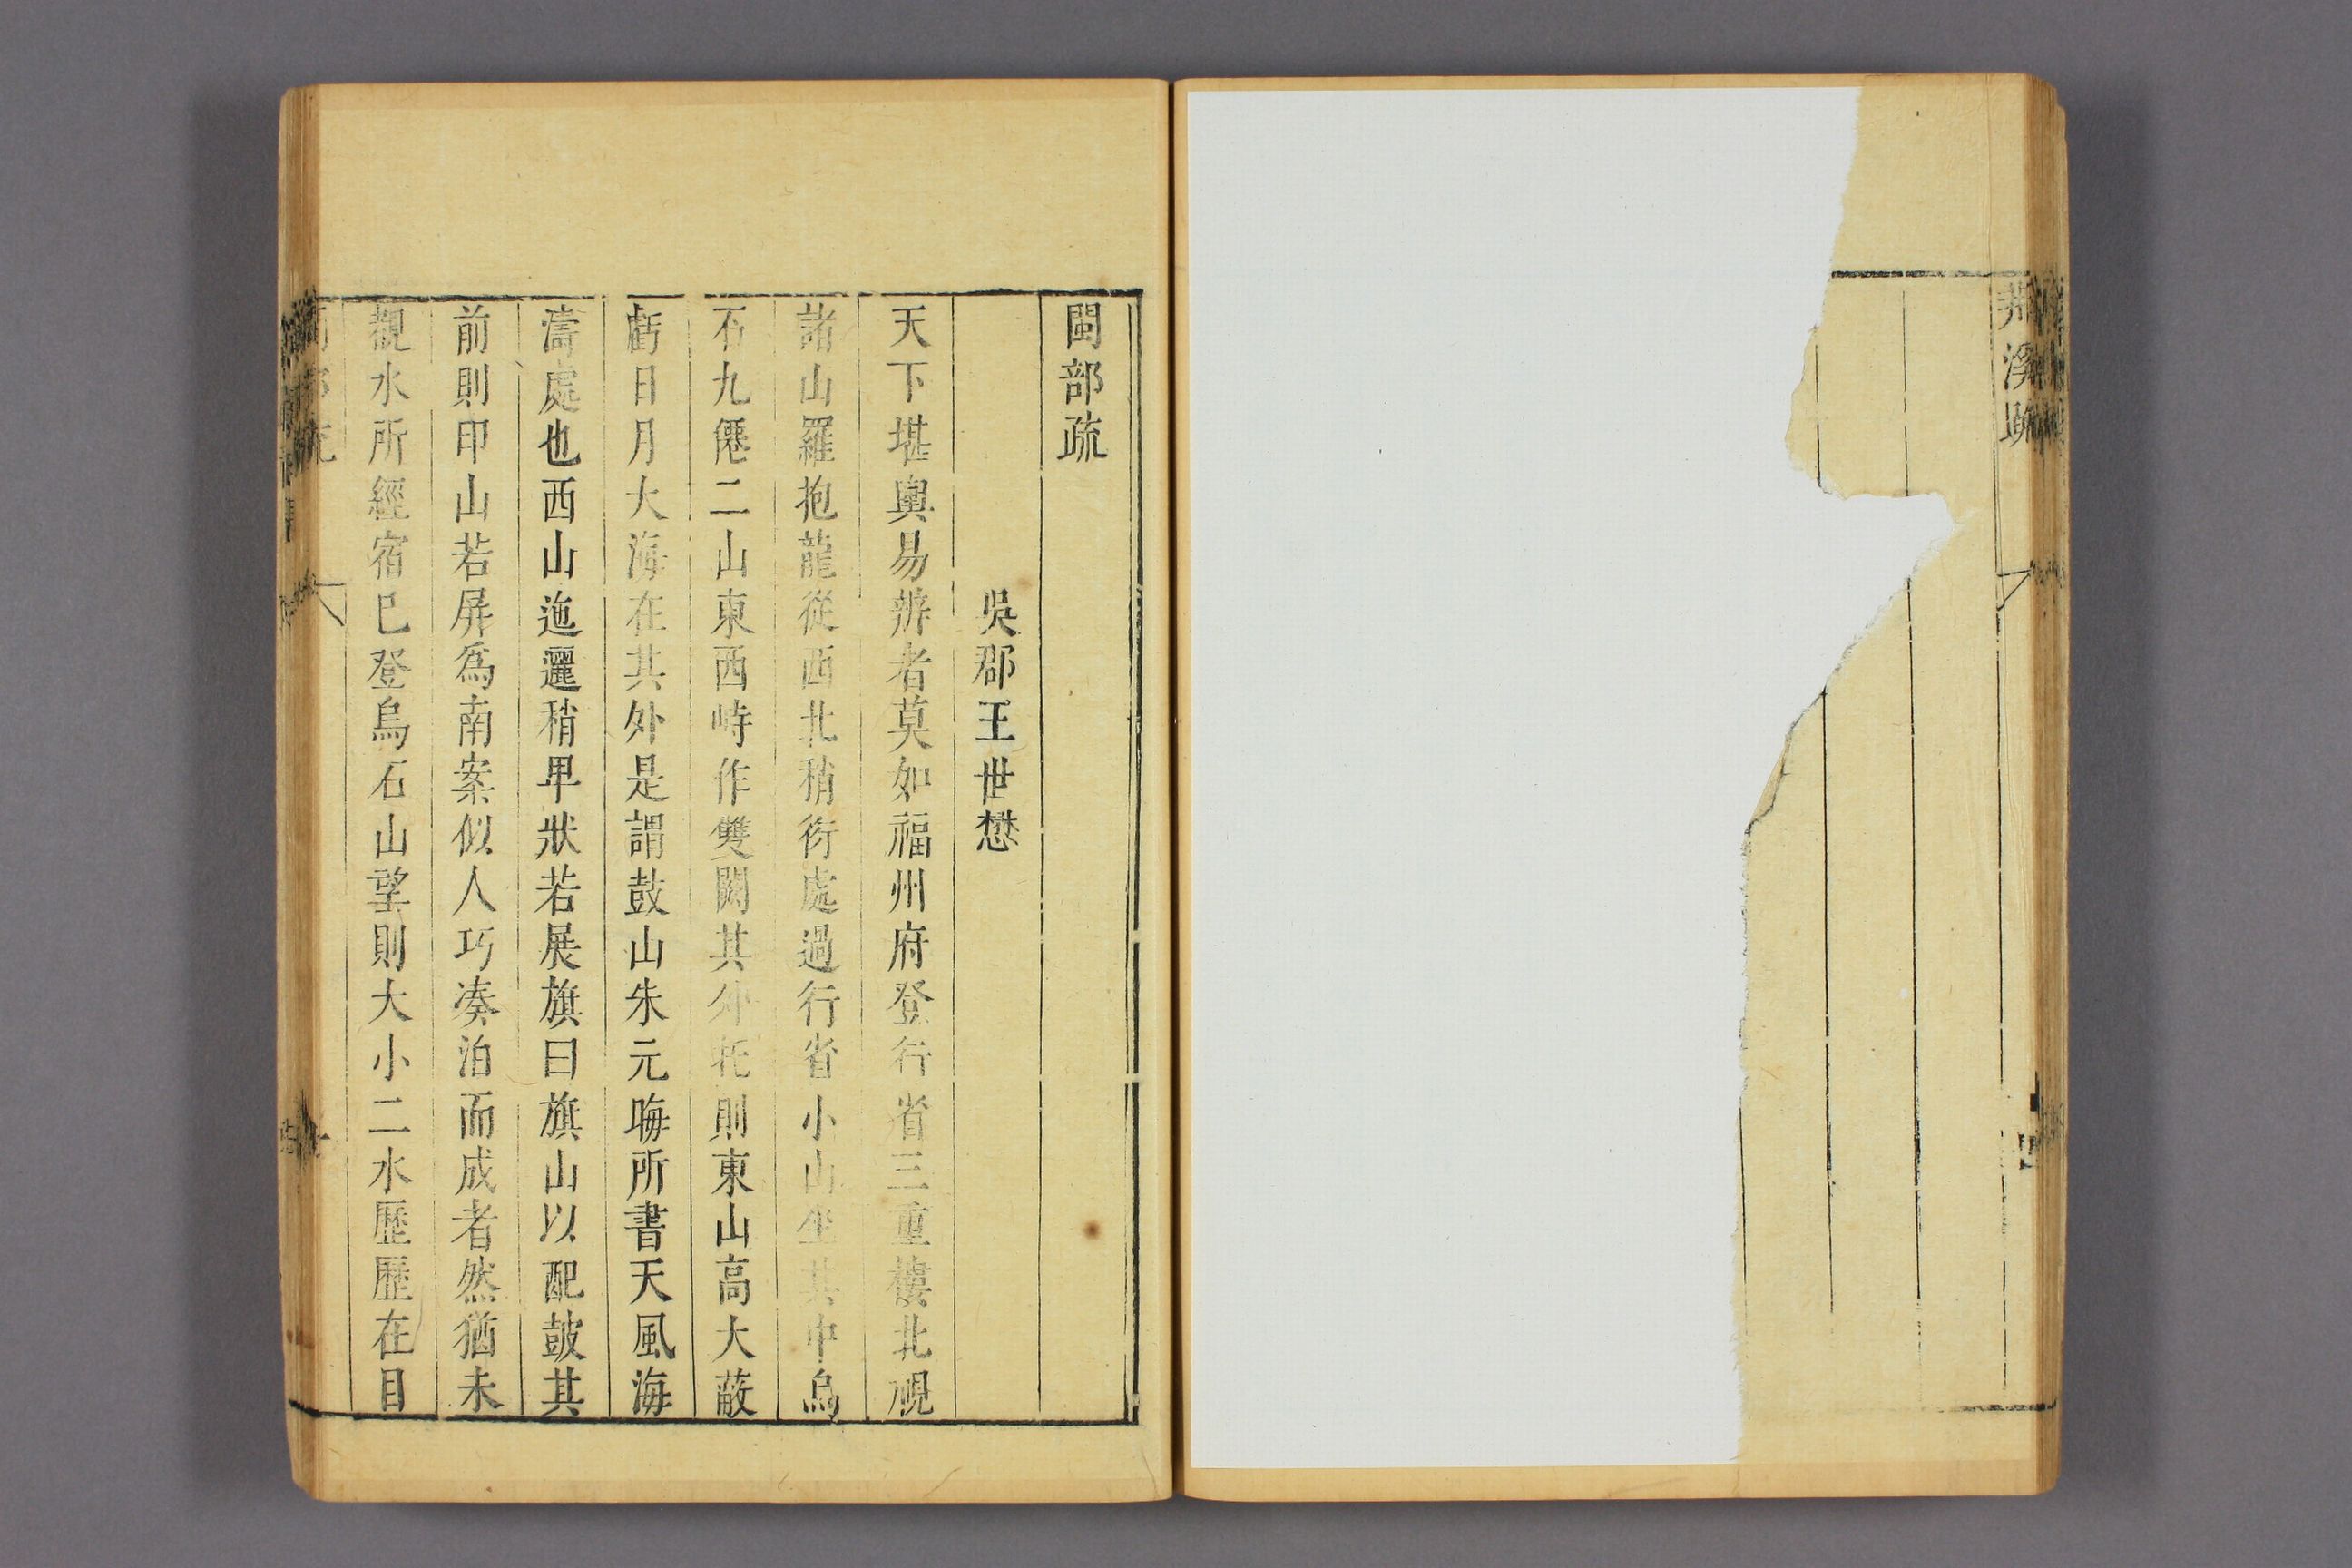 閩部疏
吳郡王世懋
天下堪輿易辨者莫如福州府登行省三重樓北視
諸山羅抱龍從西北稍衍處過行省小山坐其中烏
石九僊二山東西峙作雙闕其外托則東山高大蔽
虧日月大海在其外是謂鼓山朱元晦所書天風海
濤處也西山迤邐稍卑狀若展旗曰旗山以配皷其
前則印山若屏爲南案似人巧凑泊而成者然猶未
觀水所經宿已登烏石山望則大小二水歷歷在目